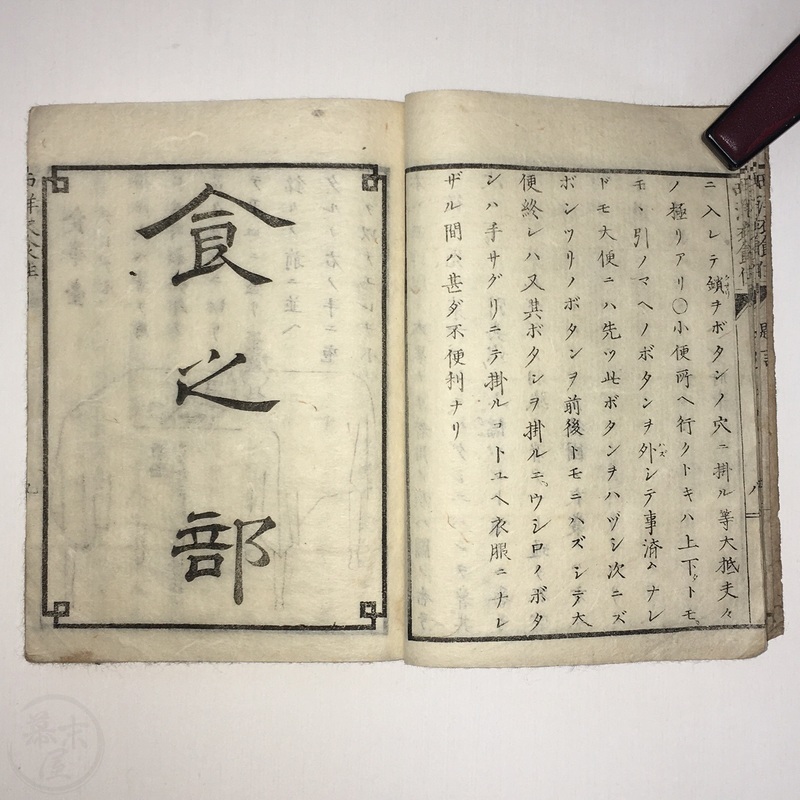 ニ入レテ鎖ヲボタンノ穴ニ掛ル等大抵夫々
ノ極リアリ〇小便所ヘ行クトキハ上下トモ
モヽ引ノマヘノボタンヲ外シテ事済ムナレ
ドモ大便ニハ先ツ此ボタンヲハヅシ次ニズ
ボンツリノボタンヲ前後トモニハズシテ大
便終レハ又其ボタンヲ掛ルニウシロノボタ
ンハ手サグリニテ掛ルコトユヘ衣服ニナレ
ザル間ハ甚ダ不便利ナリ
食之部
幕末屋